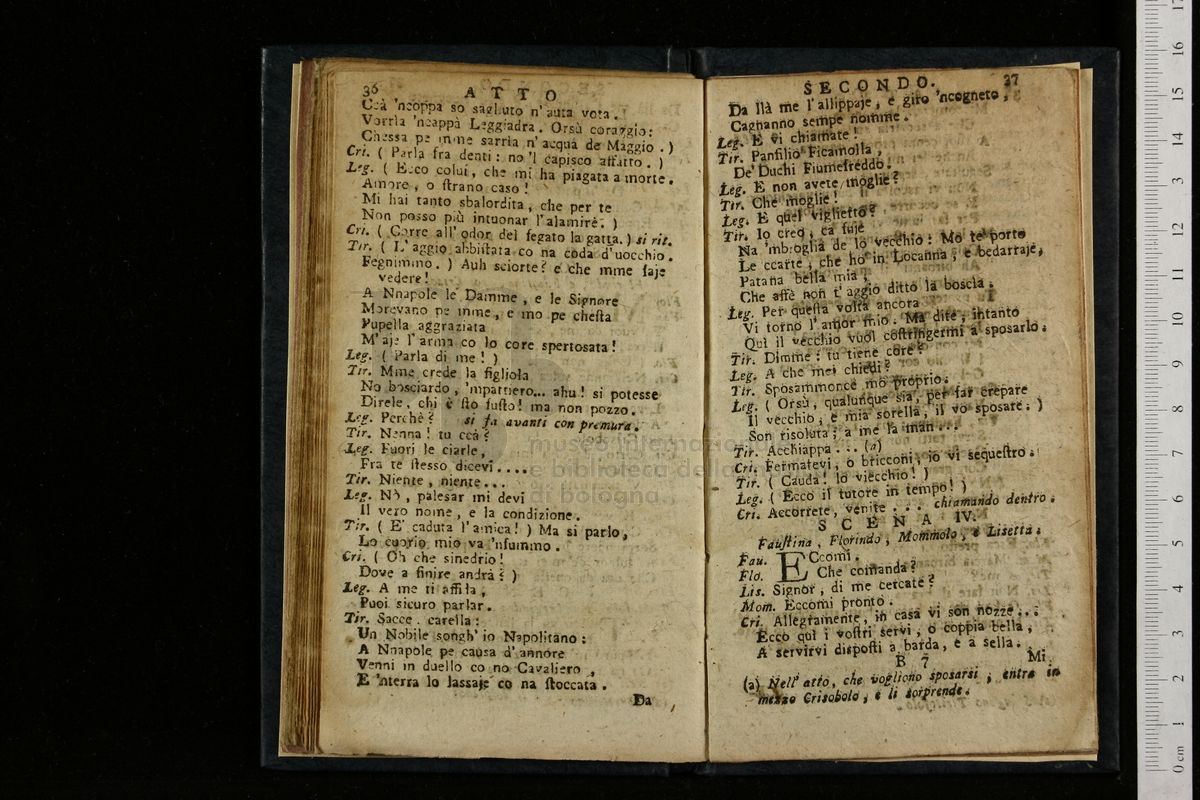 36 ATTO
Ccà 'ncoppa so sagliuto n'auta vota.
Vorria 'ncappà Leggiadra. Orsù coraggio:
Chessa pe mme sarria n'acqua de Maggio.)
Cri. ( Parla fra denti: no'l capisco affatto. )
Leg. ( Ecco colui, che mi ha piagata a morte.
Amore, o ſtrano caso!
Mi hai tanto sbalordita, che per te
Non posso più intuonar l'alamirè. )
Cri. ( Corre all'odor del fegato la gatta.) si rit.
Tir. ( L'aggio abbiſtata co na coda d'uocchio.
Fegnimmo. ) Auh sciorte? e che mme faje
vedere!
A Nnapole le Damme, e le Signore
Morevano pe mme, e mo pe cheſta
Pupella aggraziata
M'aje l'arma co lo core spertosata!
Leg. ( Parla di me! )
Tir. Mme crede la figliola
No bosciardo, 'mpattiero... ahu! si potesse
Direle, chi è ſto fuſto! ma non pozzo.
Leg. Perchè? si fa avanti con premura.
Tir. Nenna! tu ccà?
Leg. Fuori le ciarle,
Fra te ſtesso dicevi....
Tir. Niente, niente...
Leg. Nò, palesar mi devi
Il vero nome, e la condizione.
Tir. ( E' caduta l'amica! ) Ma si parlo,
Lo cuorio mio va 'nfummo.
Cri. ( Oh che sinedrio!
Dove a finire andrà? )
Leg. A me ti affida,
Puoi sicuro parlar.
Tir. Sacce, carella:
Un Nobile songh'io Napolitano:
A Nnapole pe causa d'annore
Venni in duello co no Cavaliero,
E 'nterra lo lassaje co na ſtoccata.
Da
SECONDO. 37
Da llà me l'allippaje, e giro 'ncogneto,
Cagnanno sempe nomme.
Leg. E vi chiamate!
Tir. Panfilio Ficamolla,
De' Duchi Fiumefreddo.
Leg. E non avete moglie?
Tir. Che moglie!
Leg. E quel viglietto?
Tir. Io creo, ca fuje
Na 'mbroglia de lo vecchio: Mo te porto
Le ccarte, che ho in Locanna, e bedarraje,
Patana bella mia,
Che affè non t'aggio ditto la boscìa.
Leg. Per queſta volta ancora
Vi torno l'amor mio. Ma dite, intanto
Quì il vecchio vuol coſtringermi a sposarlo.
Tir. Dimme: tu tiene core?
Leg. A che mei chiedi?
Tir. Sposammonce mo proprio.
Leg. ( Orsù, qualunque sia, per far crepare
Il vecchio, e mia sorella, il vo sposare. )
Son risoluta; a me la man...
Tir. Acchiappa... (a)
Cri. Fermatevi, o bricconi, io vi sequeſtro.
Tir. ( Cauda! lo viecchio! )
Leg. ( Ecco il tutore in tempo! )
Cri. Accorrete, venite... chiamando dentro.
SCENA IV.
Fauſtina, Florindo, Mommolo, e Lisetta.
Fau. ECcomi.
Flo. Che comanda?
Lis. Signor, di me cercate?
Mom. Eccomi pronto.
Cri. Allegramente, in casa vi son nozze...
Ecco quì i voſtri servi, o coppia bella,
A servirvi disposti a barda, e a sella.
B 7 Mi
(a) Nell'atto, che vogliono sposarsi, entra in
mezzo Crisobolo, e li sorprende.
museo internazio
e biblioteca della
di bologna